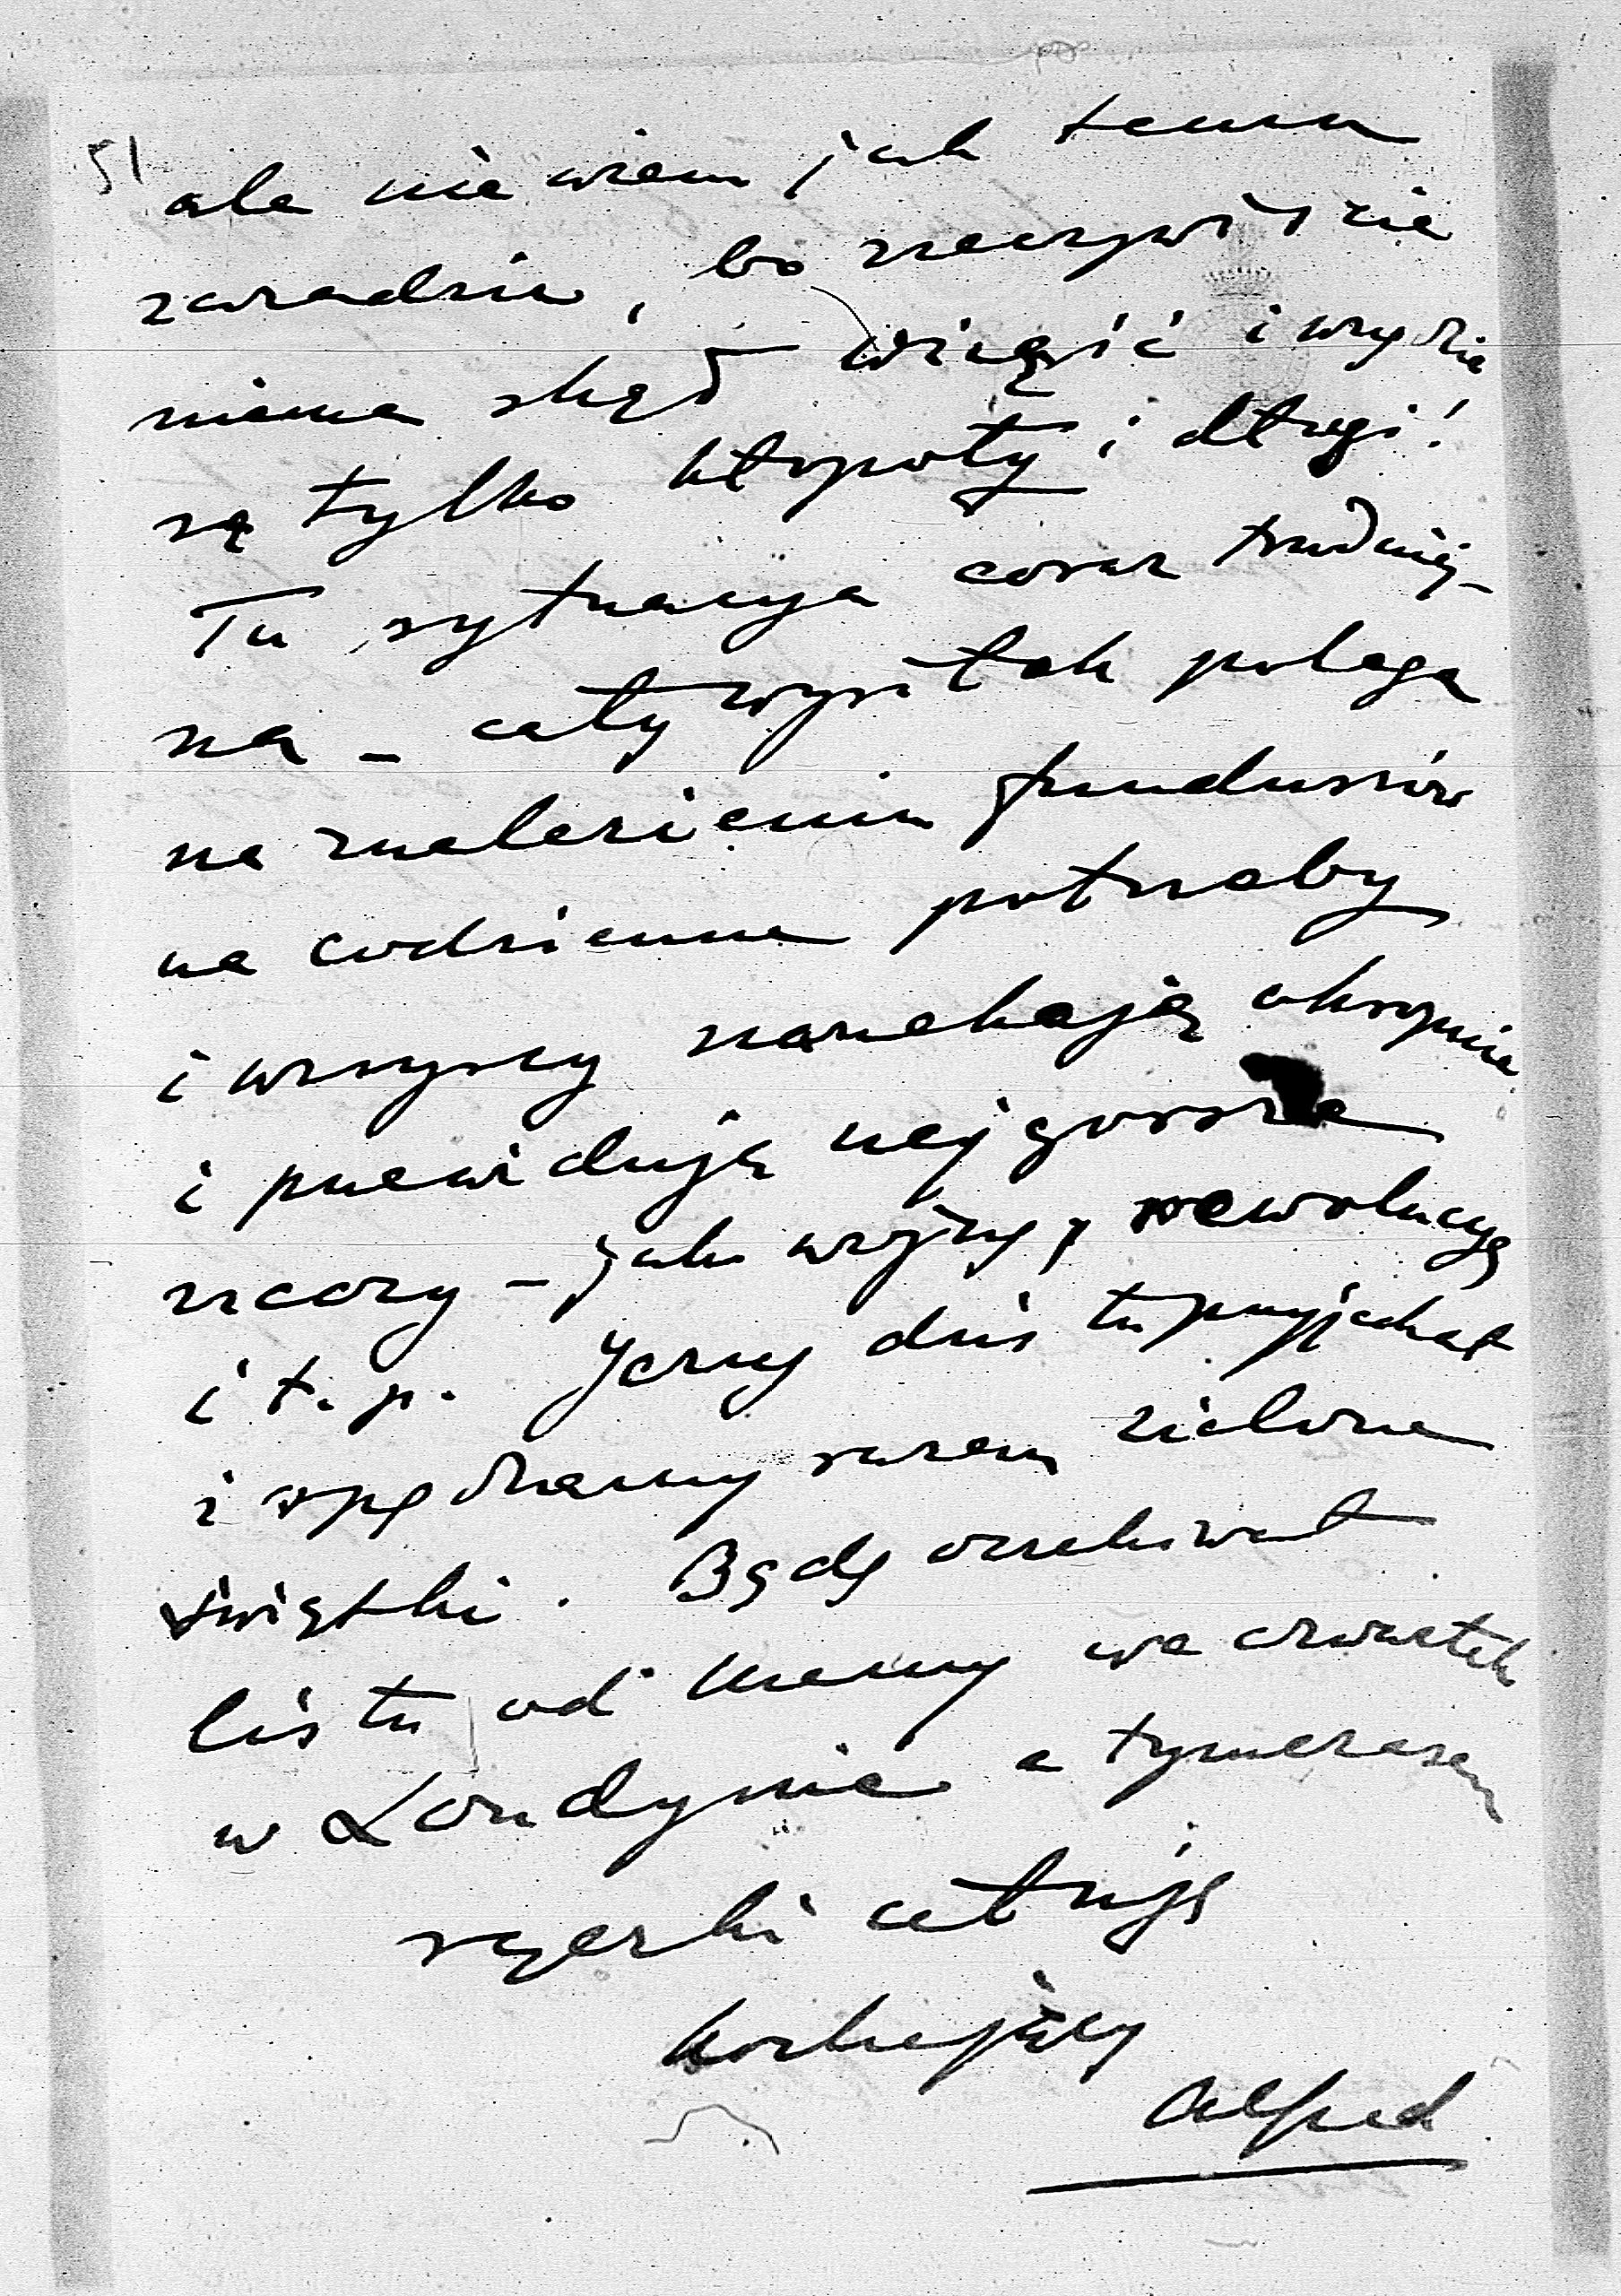 5/
ale nie wiem jak temu
zaradzić, bo rzeczywiście
niema skąd wziąść i wszędzie
są tylko kłopoty i długi!
Tu sytuacya coraz trudniej-
sza – cały wysiłek polega
na znalezieniu funduszów
na codzienne potrzeby
i wszyscy narzekają okropnie
i przewidują najgorsze
rzeczy – jak wojnę, rewolucyę
i t. p. Jerzy dziś tu przyjechał
i spędzamy razem zielone
świątki. Będę oczekiwał
listu od Mamy we czwartek
w Londynie a tymczasem
rączki całuję
kochający
Alfred